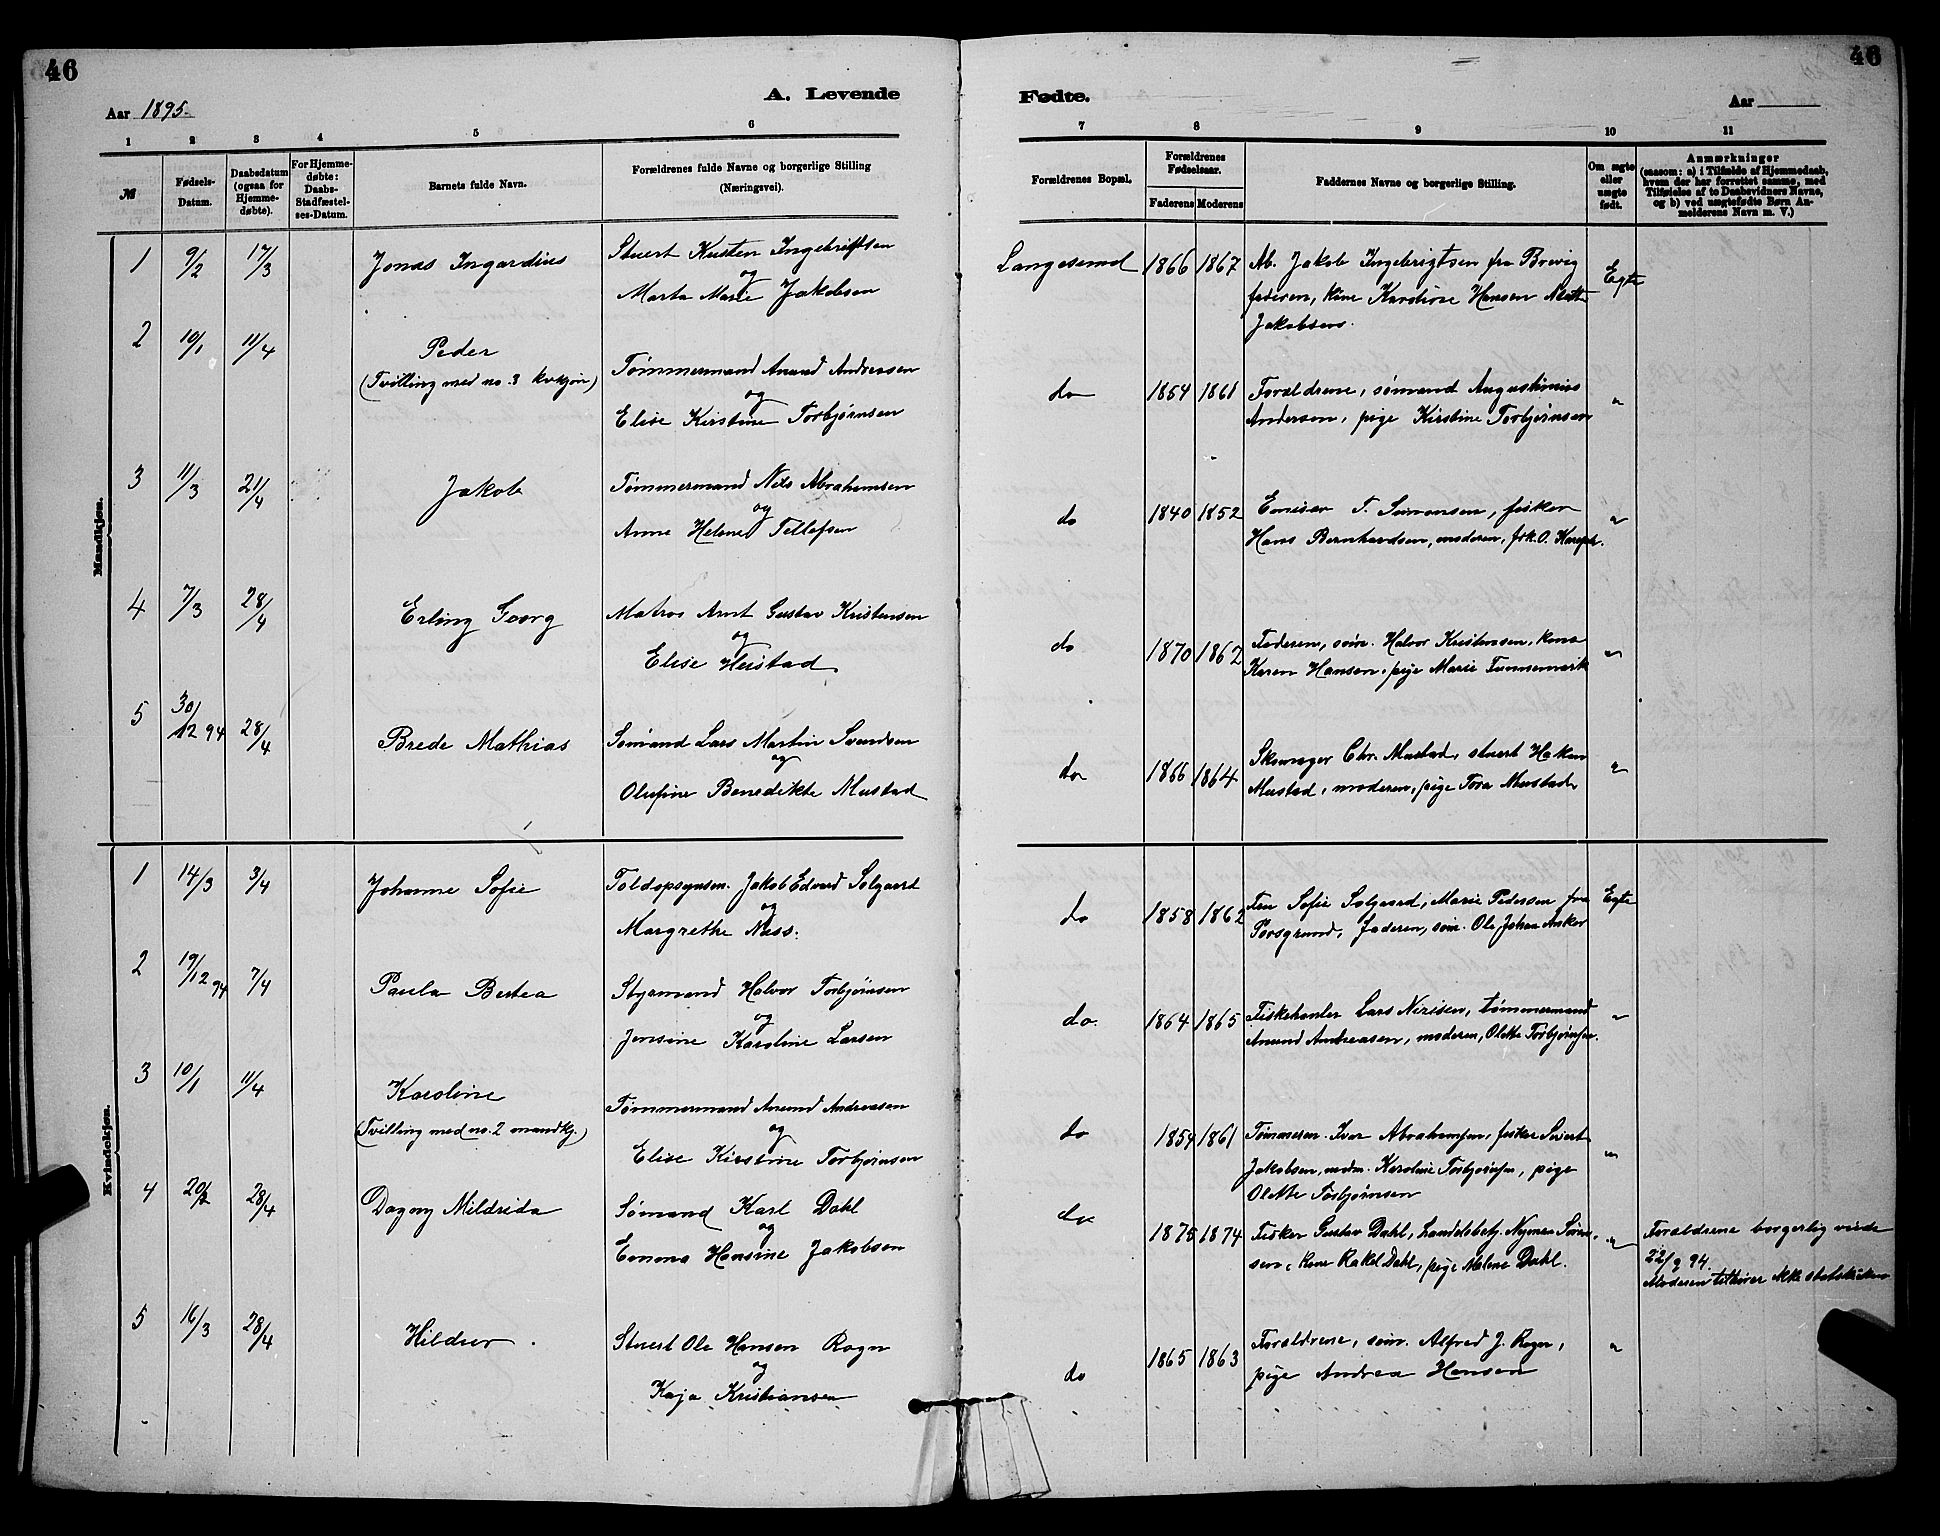 46
46
A. Levende
Fødte.
Aar 1895.
Aar
1 2 3 4 5 6 7 8 9 10 11
№
Fødsels-
Datum.
Daabedatum
(ogsaa for
Hjemme-
døbte).
For Hjemme-
døbte:
Daabs-
Stadfæstel-
ses-Datum.
Barnets fulde Navn.
Forældrenes fulde Navne og borgerlige Stilling
(Næringsvei).
Forældrenes Bopæl.
Forældrenes
Fødselsaar.
Faderens Moderens
Faddernes Navne og borgerlige Stilling.
Om ægte
eller
uægte
født.
Anmærkninger
(saasom: a) i Tilfælde af Hjemmedaab,
hvem der har forrettet samme, med
Tilføielse af to Daabsvidners Navne,
og b) ved uægtefødte Børn An-
melderens Navn m. V.)
Mandkjøn.
1 9/2 17/3 Jonas Ingardius Stuert Kristen Ingebrigtsen
og
Marta Marie Jakobsen
Langesund 1866 1867 Ab. Jakob Ingebrigtsen fra Brevig
faderen, kone Karoline Hansen
Jakobsen.
Egte
2 10/1 11/4 Peder
(Tvilling med no. 3 kvkjøn)
Tømmermand Anund Andreasen
og
Elise Kirstine Torbjørnsen
do 1854 1861 Forældrene, sømand Augustinius
Andersen, pige Kirstine Torbjørnsen
"
3 11/3 21/4 Jakob Tømmermand Nils Abrahamsen
og
Anne Helene Tellefsen
do 1840 1852 Emisær T. Simonsen, fisker
Hans Bernhardsen, moderen, frk. O.
"
4 7/3 28/4 Erling Georg Matros Arnt Gustav Kristensen
og
Elise Heistad
do 1870 1862 Faderen, søm. Halvor Kristensen, kone
Karen Hansen, pige Marie
"
5 30/12 94 28/4 Brede Mathias Sømand Lars Martin Svendsen
og
Olufine Benedikte Mustad
do 1866 1864 Chr. Mustad, stuert Hakon
Mustad, moderen, pige Tora Mustad
"
Kvindekjøn.
1 14/3 3/4 Johanne Sofie Toldopsynsm. Jakob Edvard Solgaard
og
Margrethe Næss.
do 1858 1862 Fru Sofie Solgaard, Marie Pedersen fra
Porsgrund, faderen, søm. Ole Johan Asker
Egte
2 19/12 94 7/4 Paula Bertea Styrmand Halvor Torbjørnsen
og
Jensine Karoline Larsen
do. 1864 1865 Fiskehanler Lars Nirisen, tømmermand
Anund Andreasen, moderen, Olette Torbjørnsen.
"
3 10/1 11/4 Karoline
(Tvilling med no. 2 mandkj.)
Tømmermand Anund Andreasen
og
Elise Kirstine Torbjørnsen
do 1854 1861 Tømmerm. Iver Abrahamsen, fisker Sivert
Jakobsen, madm. Karoline Torbjørnsen, pige
Olette Torbjørnsen
"
4 20/2 28/4 Dagny Mildrida Sømand Karl Dahl
og
Emma Hansine Jakobsen
do 1875 1874 Fisker Gustav Dahl, handelsbetj. Nyman Søren-
sen, kone Rakel Dahl, pige Malene Dahl.
"
Forældrene borgerlig viede
22/9 94.
Moderen tilhører ikke statskirken
5 16/3 28/4 Hildur Stuert Ole Hansen Rogn
og
Kaja Kristiansen
do 1865 1863 Forældrene, søm. Alfred J. Rogn,
pige Andrea Hansen
"